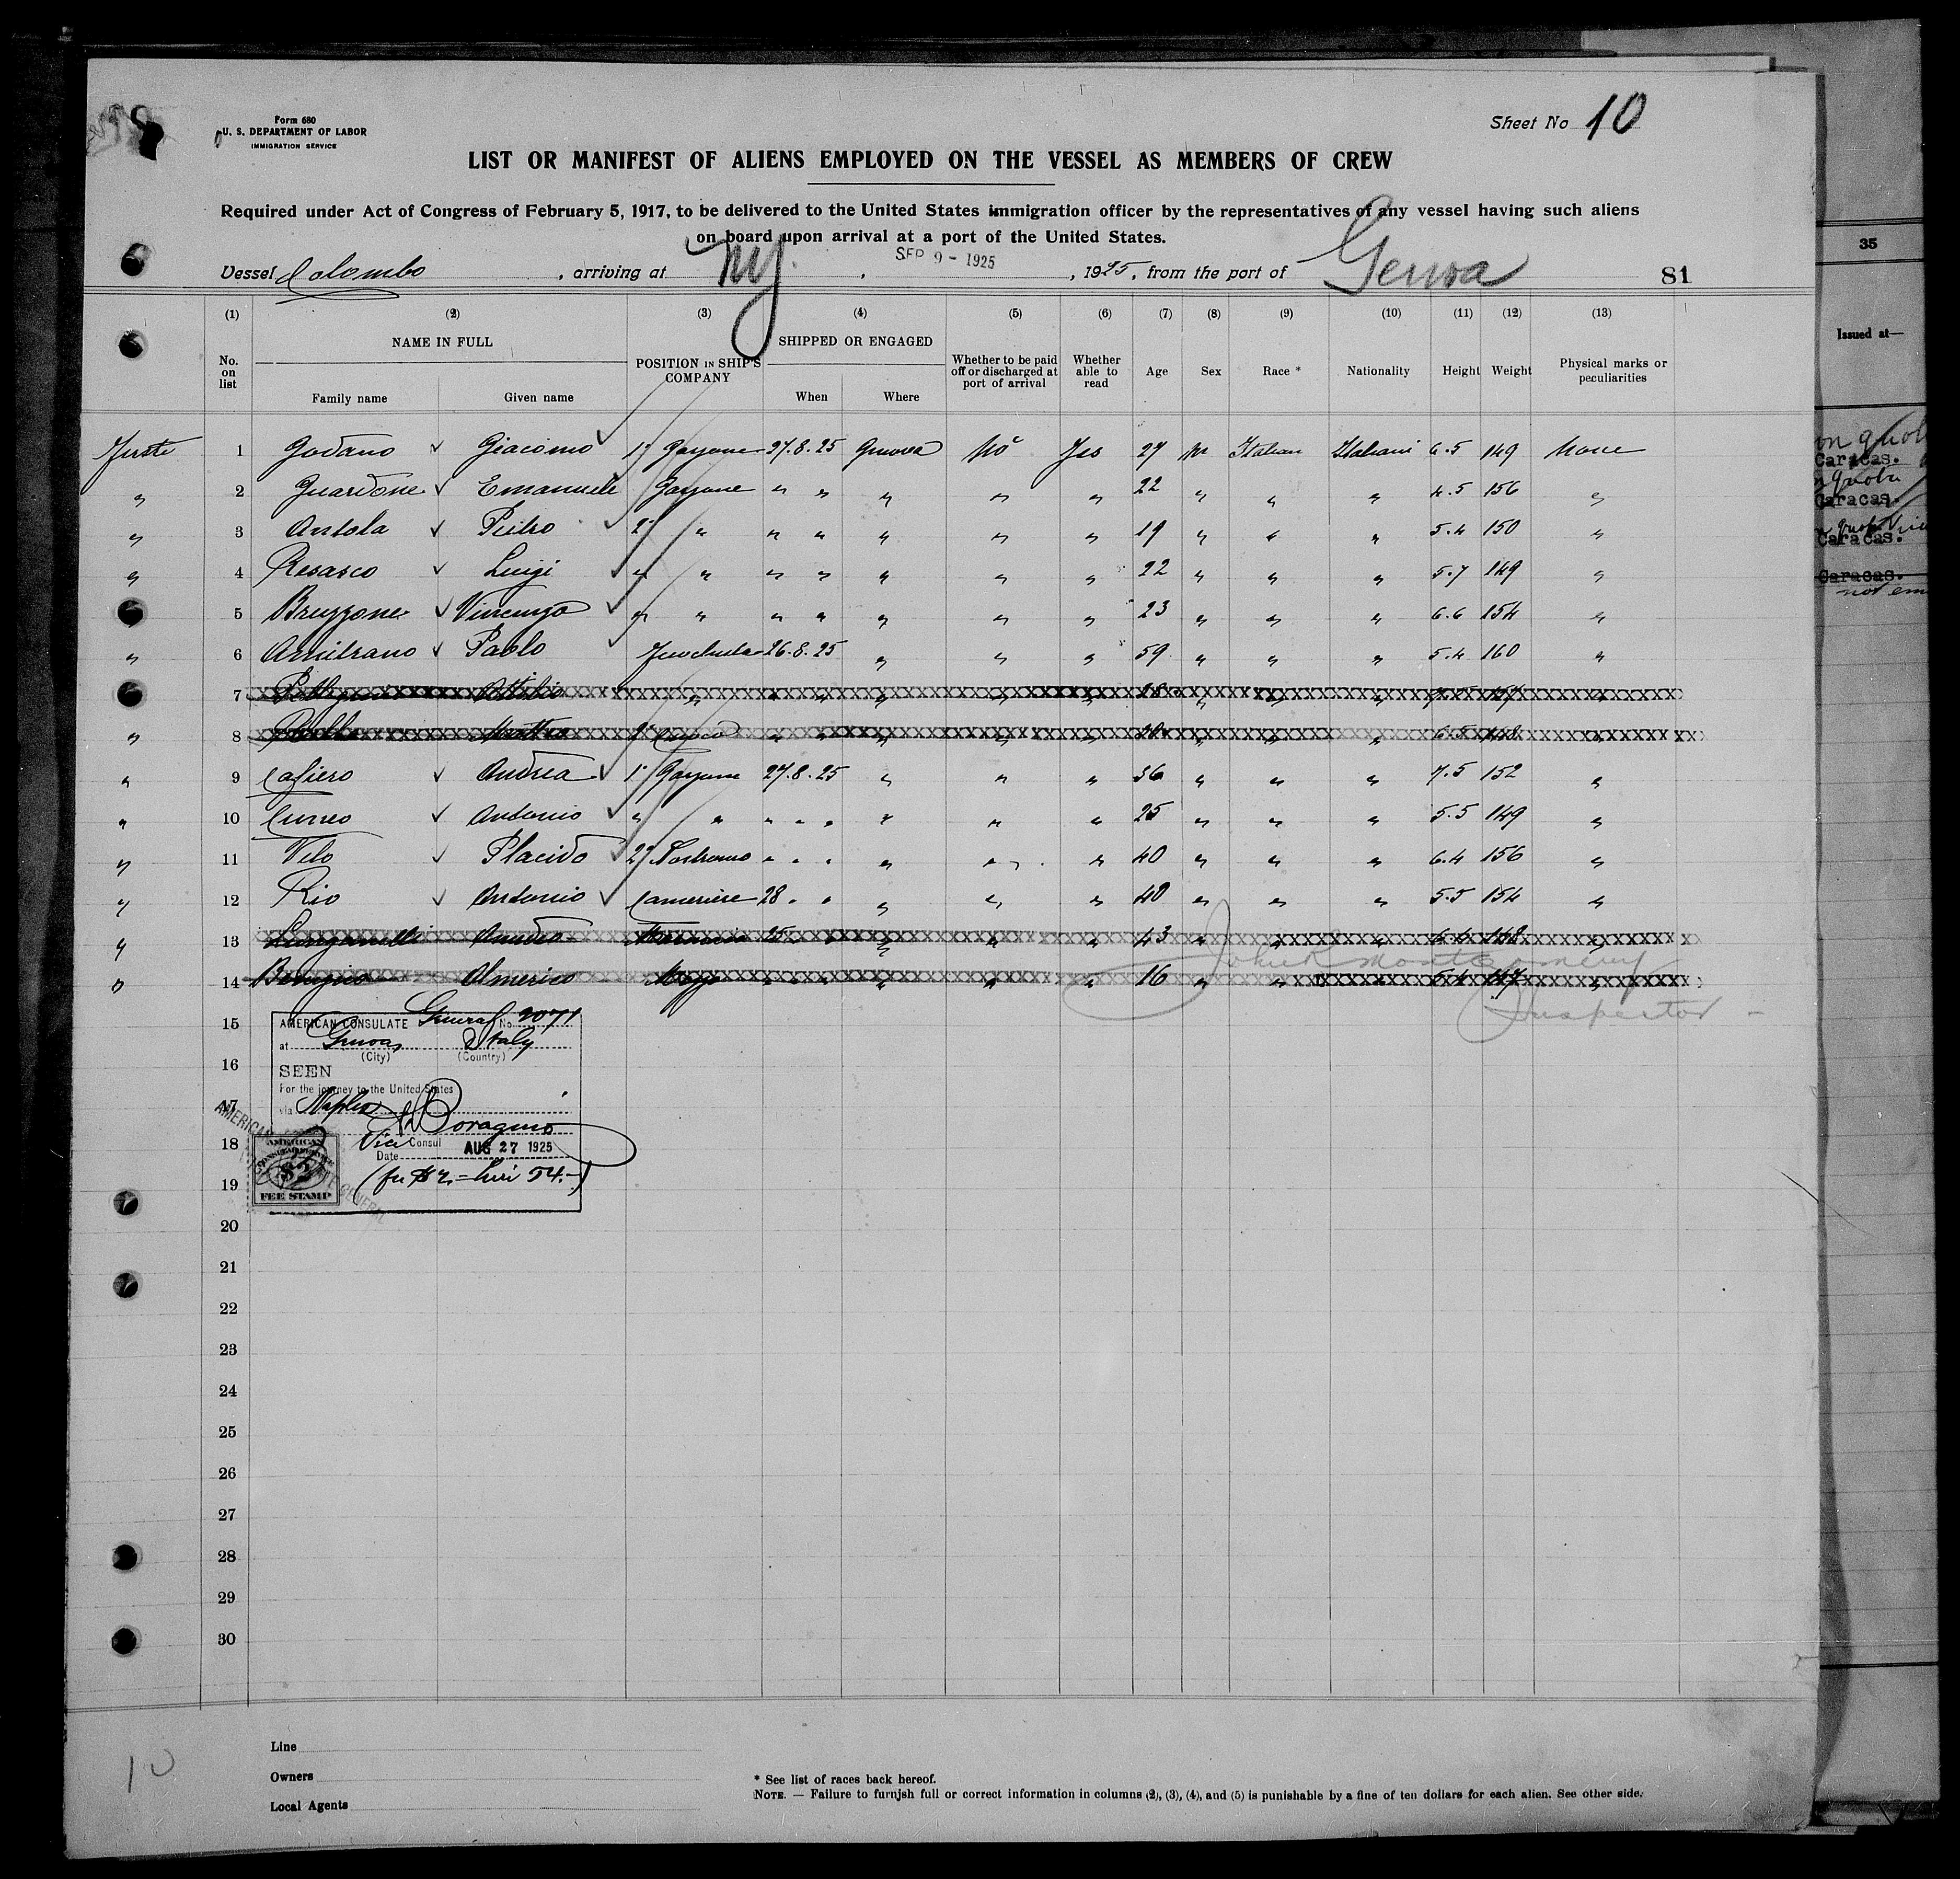 Form 680
U. S. DEPARTMENT OF LABOR
IMMIGRATION SERVICE
Sheet No 10
LIST OR MANIFEST OF ALIENS EMPLOYED ON THE VESSEL AS MEMBERS OF CREW
Required under Act of Congress of February 5, 1917, to be delivered to the United States immigration officer by the representatives of any vessel having such aliens
on board upon arrival at a port of the United States.
Vessel Colombo, arriving at NY, SEP 9 - 1925, 1925, from the port of Genoa 81
(1) (2) (3) (4) (5) (6) (7) (8) (9) (10) (11) (12) (13)
No. on list NAME IN FULL Family name Given name POSITION IN SHIP'S COMPANY SHIPPED OR ENGAGED When Where Whether to be paid off or discharged at port of arrival Whether able to read Age Sex Race * Nationality Height Weight Physical marks or peculiarities
1 Godano Giacomo 1° Garzone 27.8.25 Genova No Yes 27 M Italian Italiani 6.5 149 None
" 2 Guardone Emanuele Garzone " " " " " 22 " " " 4.5 156 "
" 3 Antola Pietro 2° " " " " " " 19 " " " 5.4 150 "
" 4 Resasco Luigi " " " " " " " 22 " " " 5.7 149 "
5 Bruzzone Vincenzo " " " " " " " 23 " " " 6.6 154 "
" 6 Amitrano Paolo 26.8.25 " " " 59 " " " 5.4 160 "
7 Attilio " " " " " " 28 " " " "
" 8 2° " " " " " " " " 6.5 148 "
" 9 Cafiero Andrea 1° Garzone 27.8.25 " " " 36 " " " 7.5 152 "
" 10 Cuneo Antonio " " " " " " " " 25 " " " 5.5 149 "
" 11 Velo Placido 2° Nostromo " " " " " " 40 " " " 6.4 156 "
" 12 Rio Antonio Cameriere 28 " " " " " 40 " " " 5.5 154 "
" 13 25 " " " " " 43 " " " 6.4 148 "
" 14 Almerico Mozzo " " " " " " 16 " " " 5.4 147 "
John R Montgomery
Inspector
15
16
17
18
19
20
21
22
23
24
25
26
27
28
29
30
AMERICAN CONSULATE General No. 2071
at Genoa Italy
(City) (Country)
SEEN
For the journey to the United States
via Naples
Vice Consul
Date AUG 27 1925
(fee $2 = Lire 54.-)
AMERICAN
$2
FEE STAMP
10
Line
Owners
Local Agents
* See list of races back hereof.
NOTE. — Failure to furnish full or correct information in columns (2), (3), (4), and (5) is punishable by a fine of ten dollars for each alien. See other side.
35
Issued at—
Caracas.
Caracas.
Caracas.
Caracas.